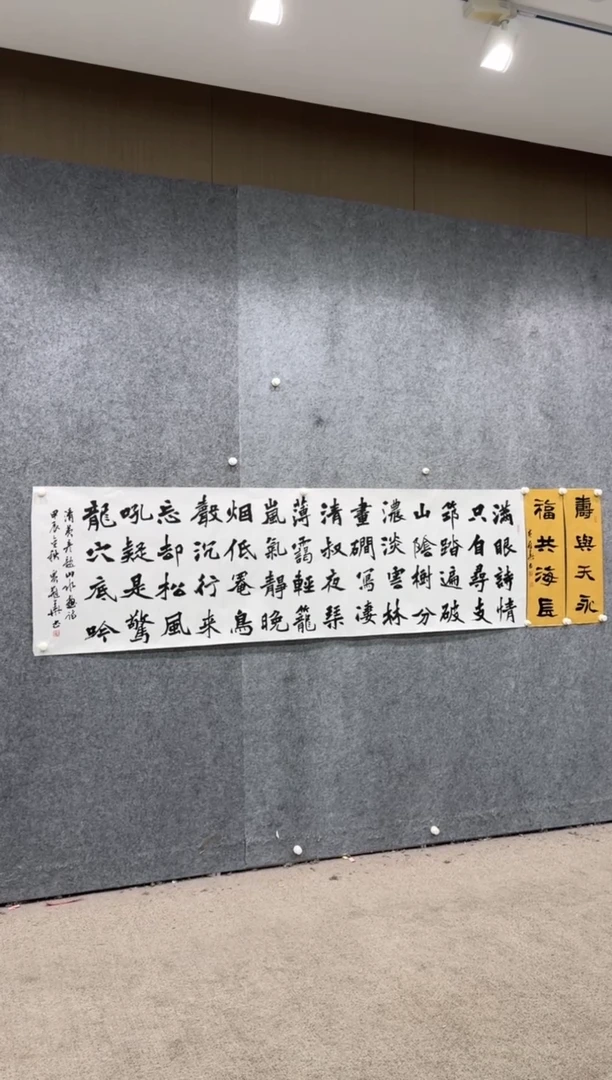 壽與天永
福共海長
滿眼詩情
只自尋支
筇踏遍破
山陰樹分
濃淡雲林
畫磵寫淒
清叔夜琴
薄靄輕籠
嵐氣靜晚
烟低罨鳥
聲沉行来
忘却松風
吼疑是驚
龍穴底吟
甲辰金秋